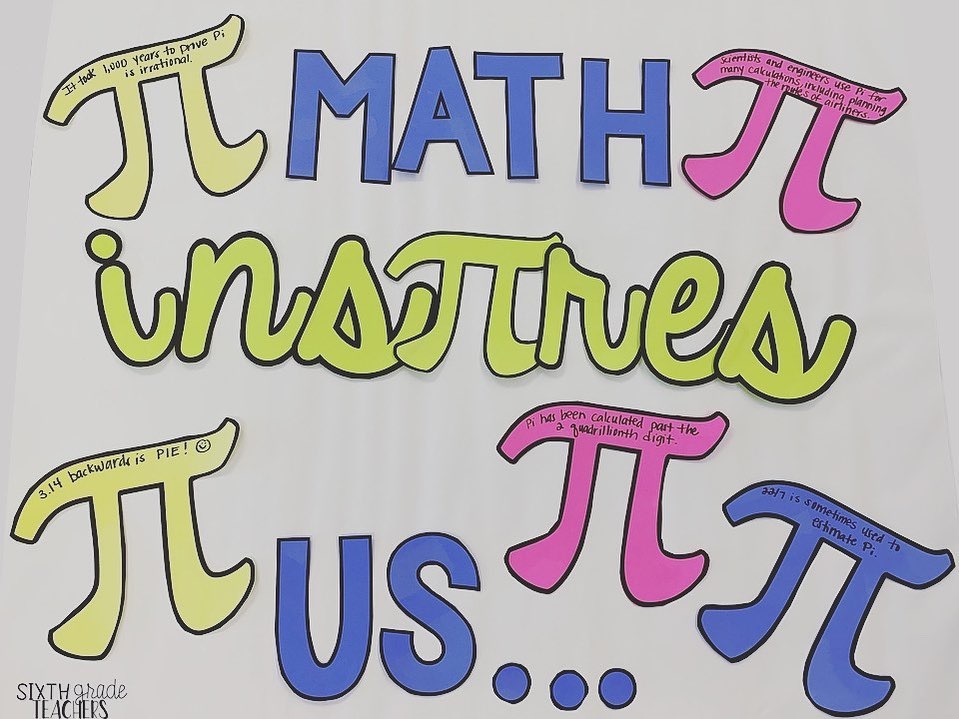 It took 1,000 years to prove Pi
is irrational.
MATH
Scientists and engineers use Pi for
many calculations, including planning
the routes of airliners.
insπres
3.14 backwards is PIE! ☺
Pi has been calculated past the
2 quadrillionth digit.
22/7 is sometimes used to
estimate Pi.
US...
SIXTH grade
TEACHERS